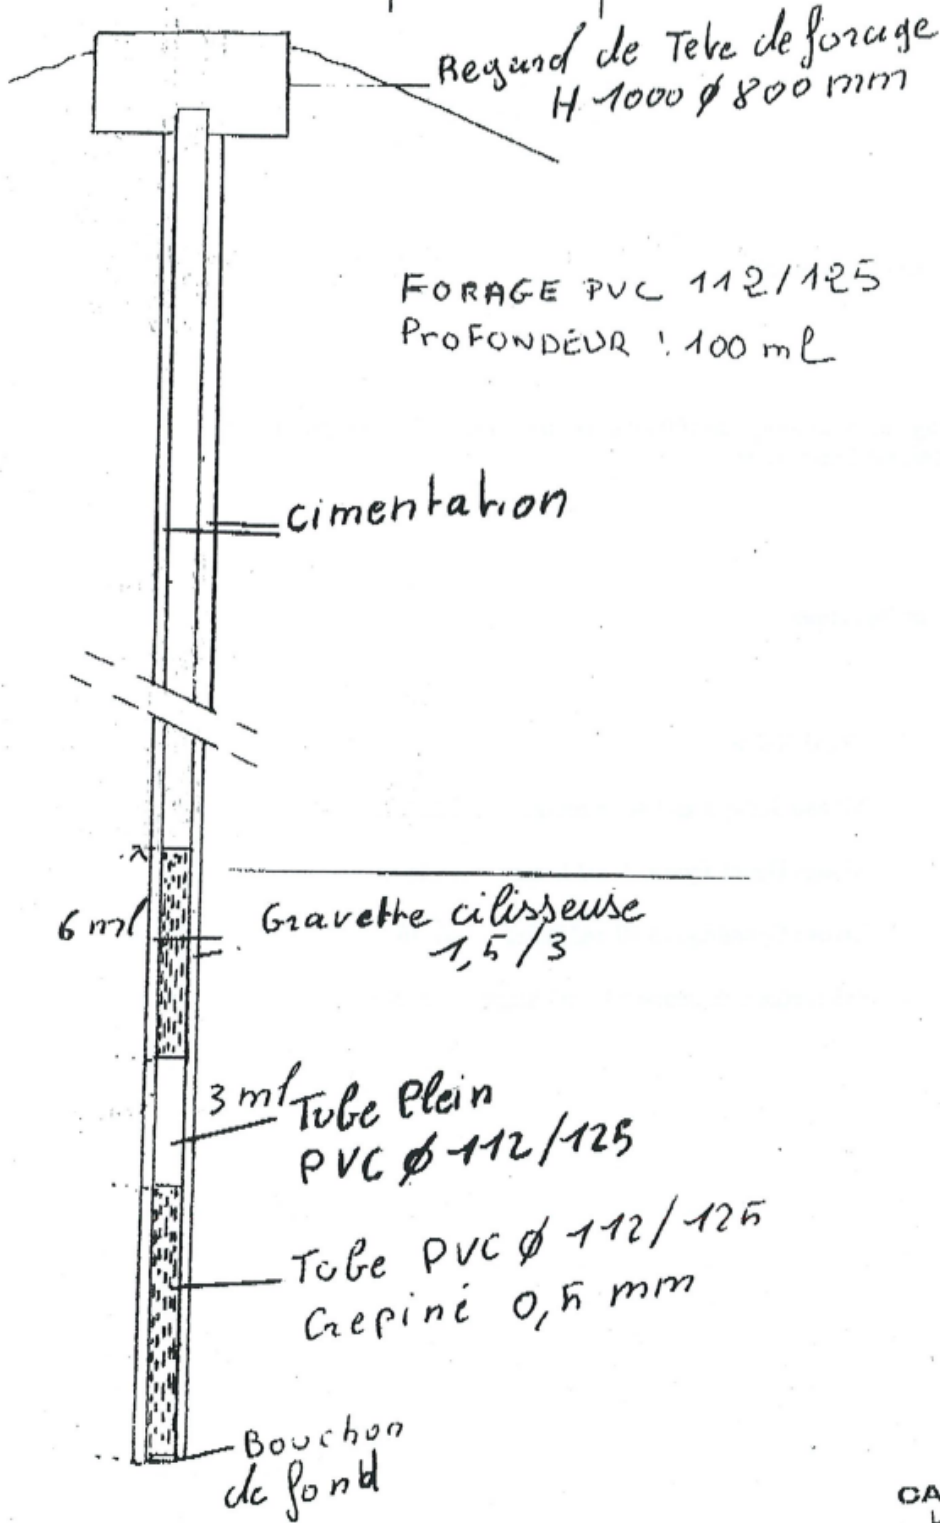 Regard de Tete de forage
H 1000 ø 800 mm
FORAGE PVC 112/125
PROFONDEUR : 100 ml
cimentation
6 ml
Gravette cilisseuse
1,5/3
3 ml
Tube Plein
PVC ø 112/125
Tube PVC ø 112/125
Crepiné 0,5 mm
Bouchon
de fond
CA